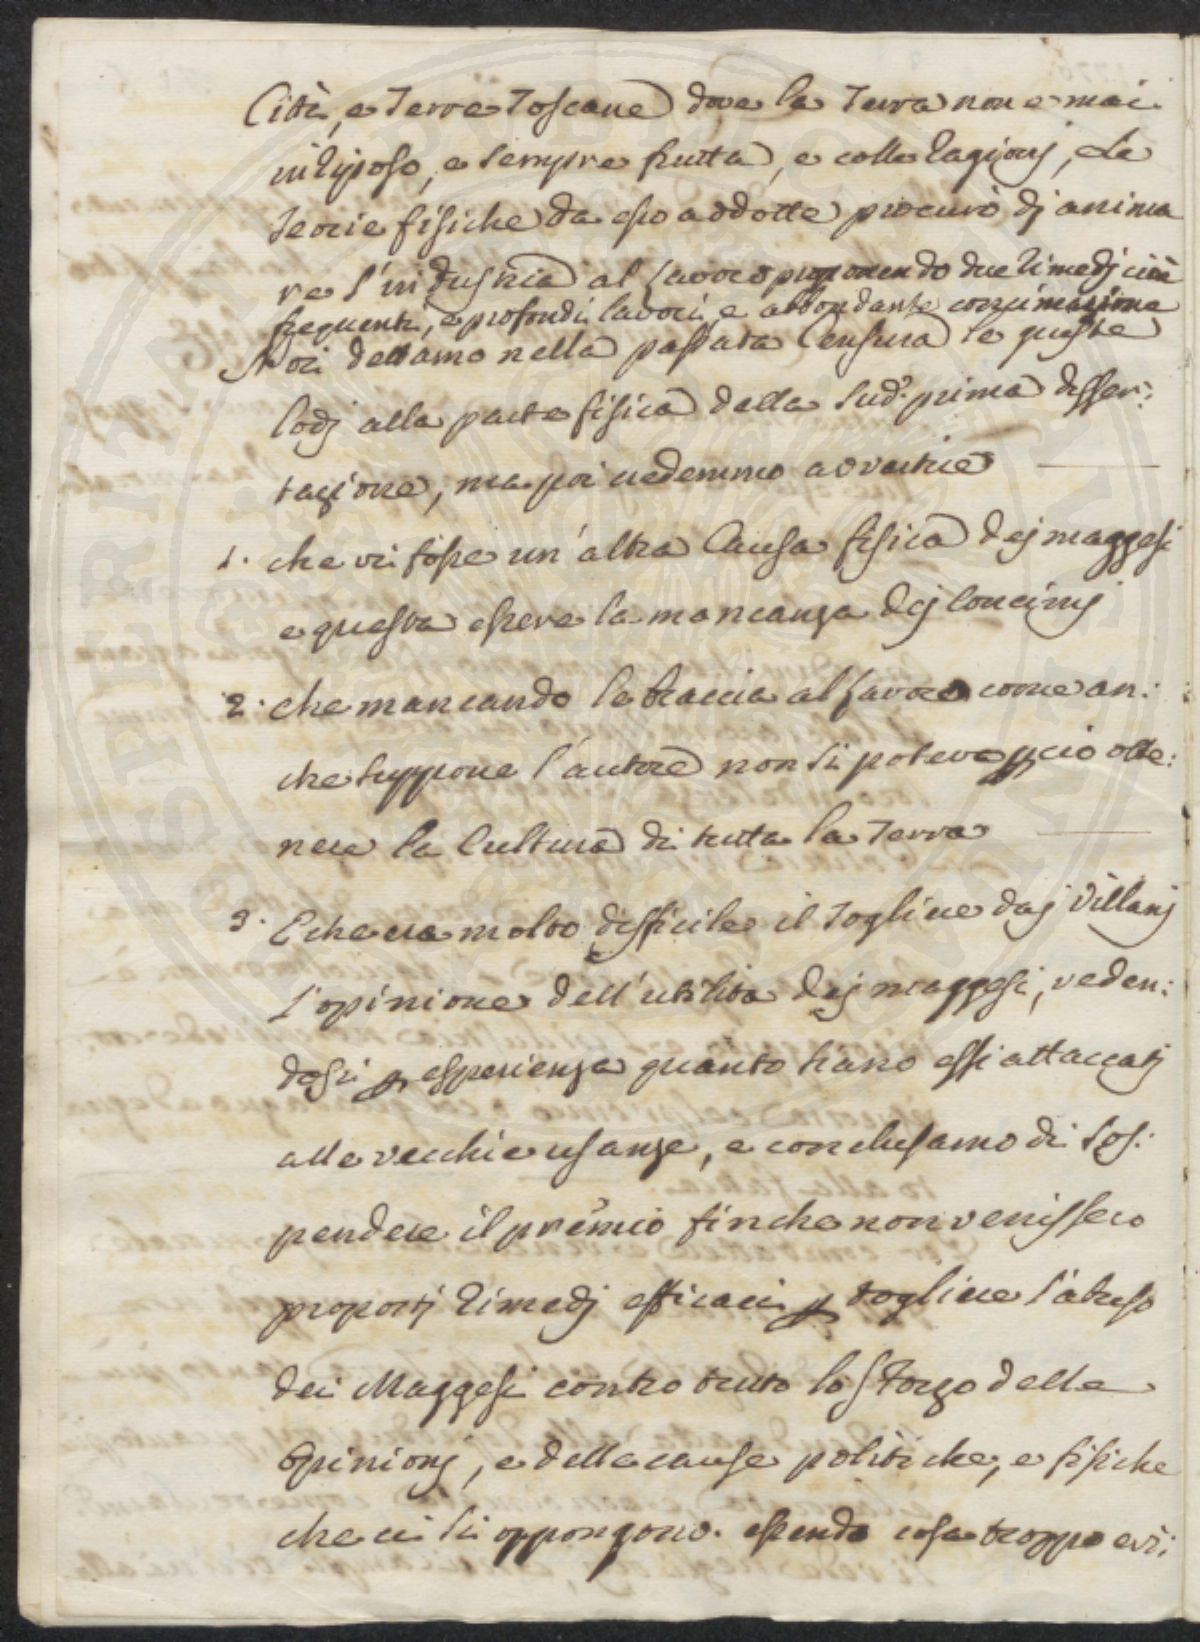 Città, e Terre Toscane dove la Terra non e mai
in riposo, e sempre frutta, e colle ragionj, e le
Teorie fisiche da esso addotte procurò dj anima
re l'industria al lavoro proponendo due rimedj cioè
frequenti, e profondi lavori, e abbondante concimazione
Noi dettamo nella passata Censura le giuste
lodj alla parte fisica della sud.ª prima disser:
tazione, ma poi vedemmo avvertire
1. che vi fosse un'altra Causa fisica dej maggesi
e questa essere la mancanza dej Concimj
2. che mancando le braccia al lavoro come an:
che suppone l'autore non si poteva p ciò otte:
nere la Cultura di tutta la Terra
3. E che era molto difficile il Togliere daj Villanj
l'opinione dell'utilità dej maggesi, veden:
dosi p esperienza quanto siano essi attaccatj
alle vecchie usanze, e conclusamo di sos:
pendere il prémio finche non venissero
propostj rimedj efficaci p togliere l'abuso
dei Maggesi contro tutto lo sforzo delle
Opinionj, e delle cause politiche, e fisiche
che ci si oppongono. essendo cosa troppo evi: